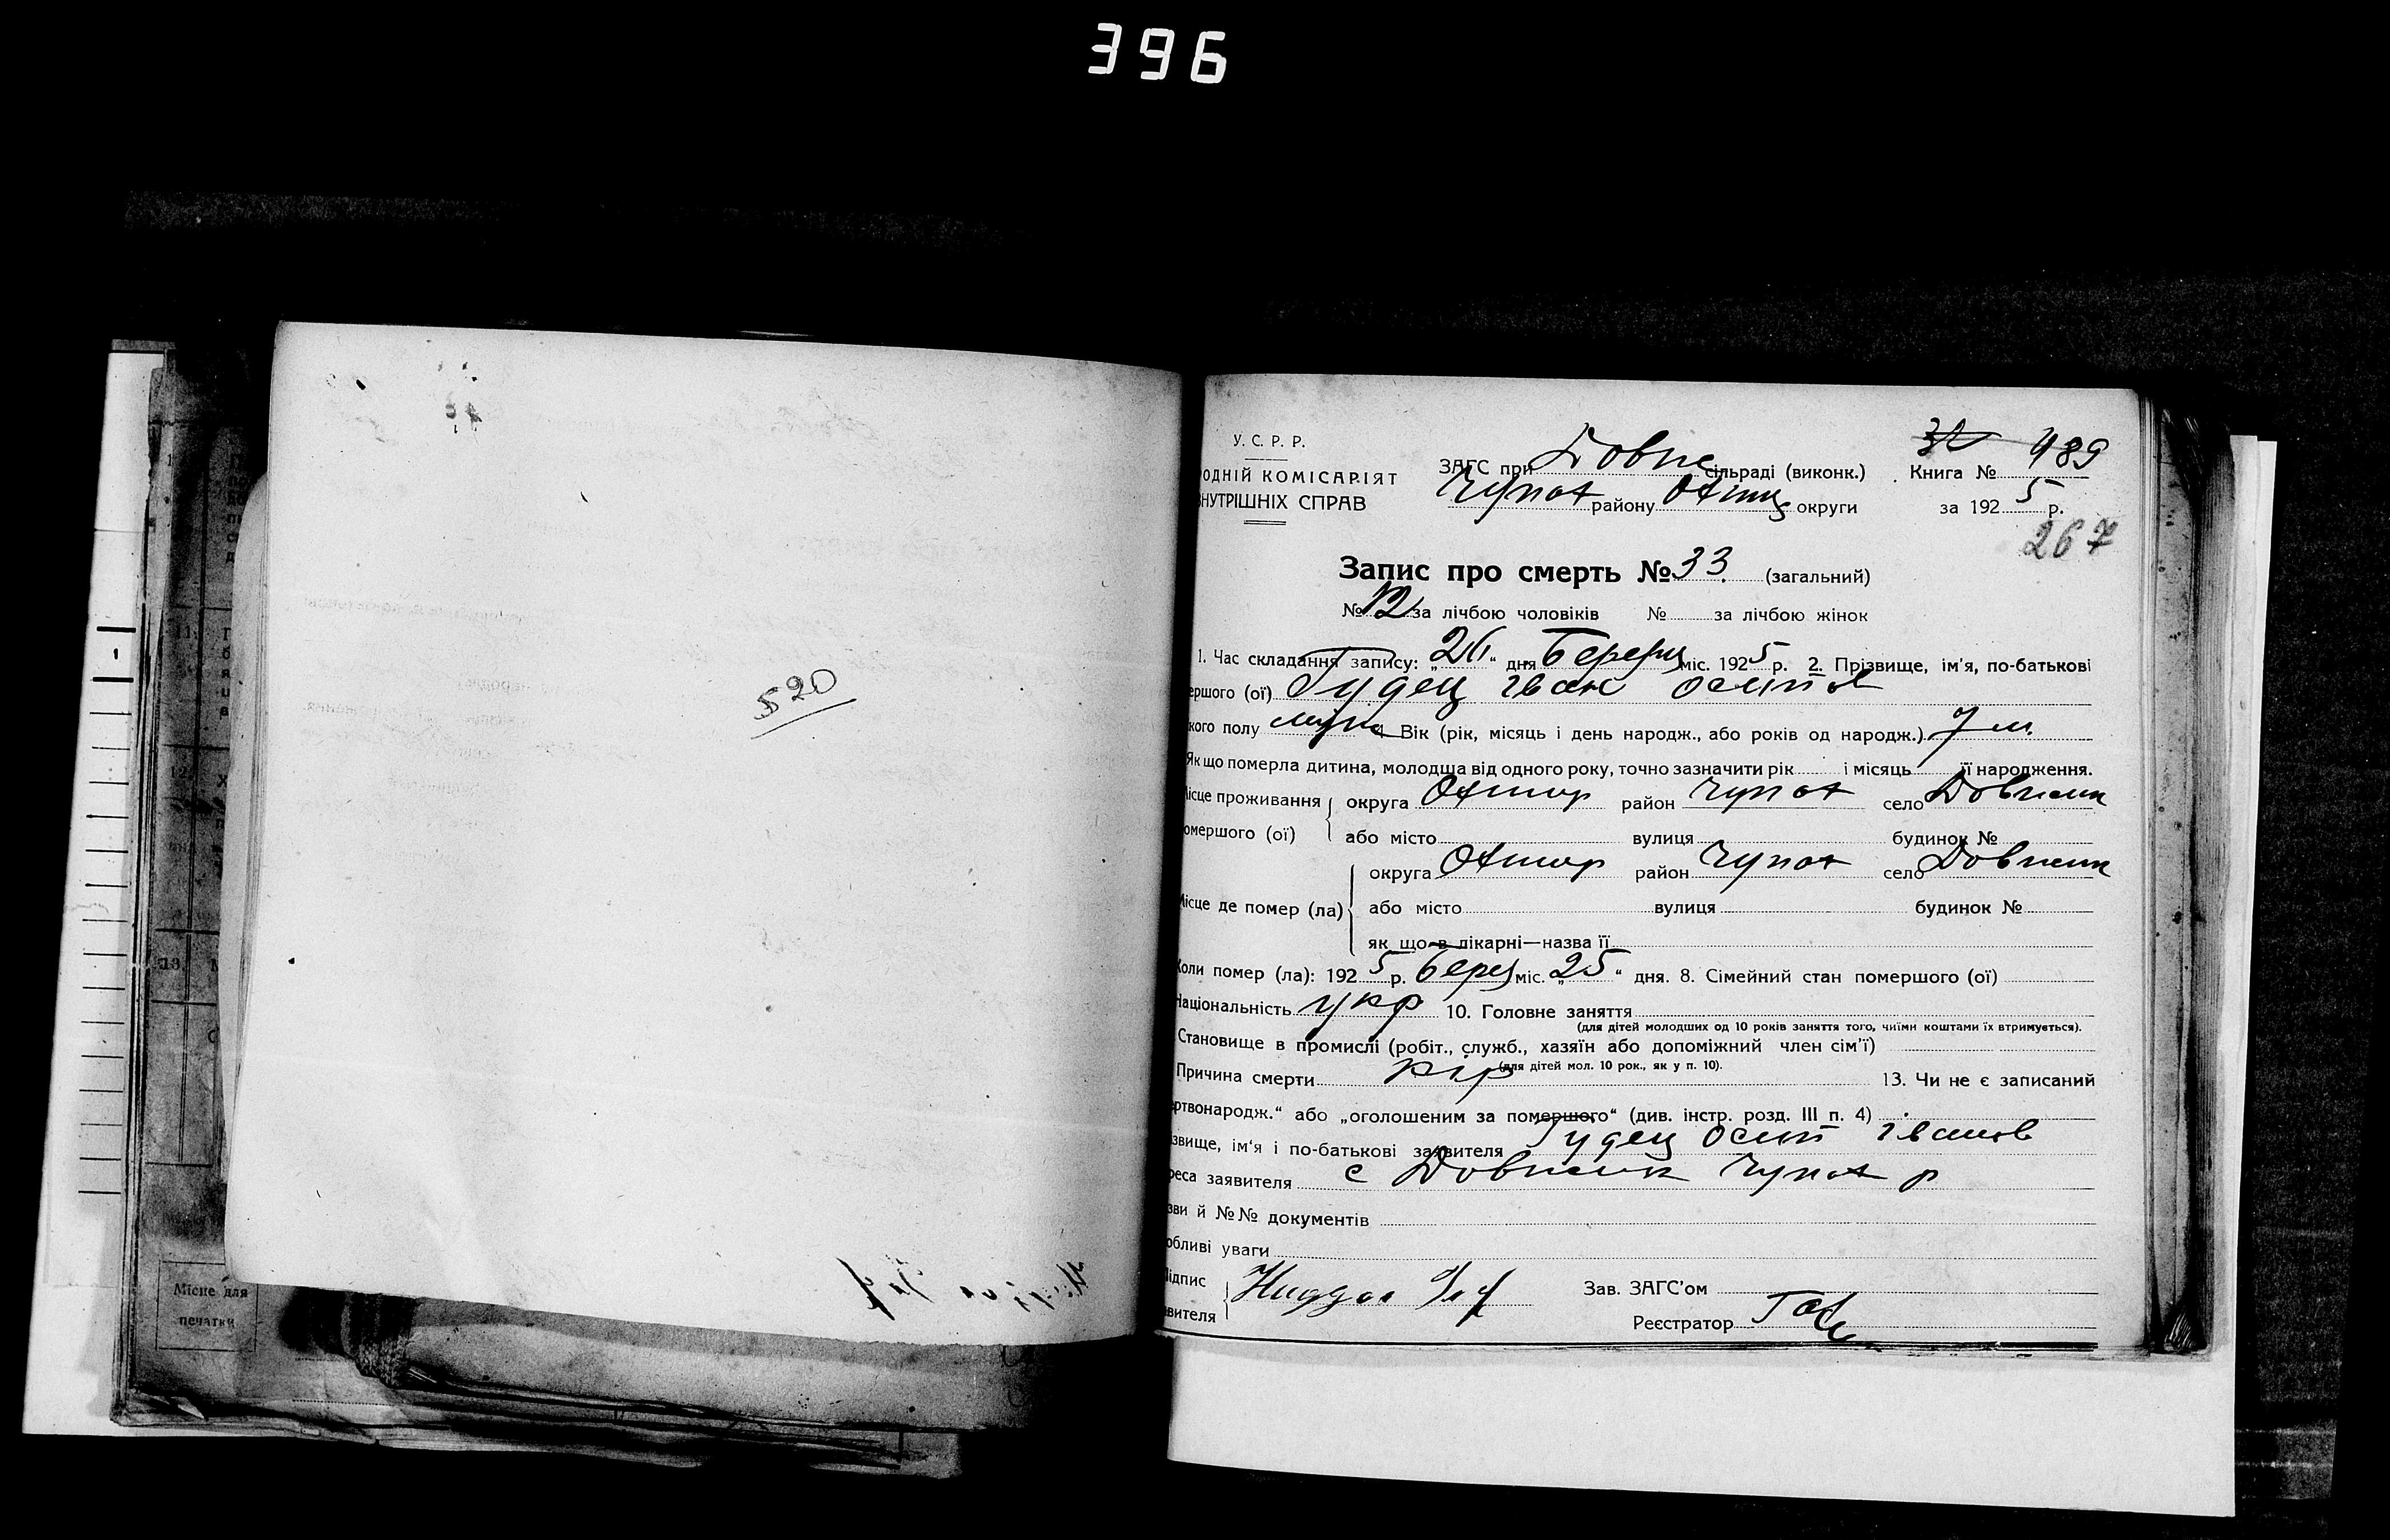 396
520
У. С. Р. Р.
ОДНІЙ КОМІСАРІЯТ
НУТРІШНІХ СПРАВ
ЗАГС при Довже сільраді (виконк.)
Чупах району Охтир округи
32 489
Книга №
за 1925 р.
267
Запис про смерть № 33 (загальний)
№ 12 за лічбою чоловіків № за лічбою жінок
1. Час складання запису: „26“ дня березня міс. 1925 р. 2. Прізвище, ім'я, по-батькові
ершого (ої) Гудец Іван Осипов
кого полу муж 4. Вік (рік, місяць і день народж., або років од народж.) 7 м.
Як що померла дитина, молодша від одного року, точно зазначити рік і місяць її народження.
ісце проживання округа Охтир район Чупах село Довжик
омершого (ої) або місто вулиця будинок №
округа Охтир район Чупах село Довжик
ісце де помер (ла) або місто вулиця будинок №
як що в лікарні—назва її
Коли помер (ла): 1925 р. берез міс. „25“ дня. 8. Сімейний стан помершого (ої)
Національність укр 10. Головне заняття
(для дітей молодших од 10 років заняття того, чиїми коштами їх втримується).
Становище в промислі (робіт., служб., хазяїн або допоміжний член сім'ї)
(для дітей мол. 10 рок., як у п. 10).
Причина смерти кір 13. Чи не є записаний
ртвонародж.“ або „оголошеним за помершого“ (див. інстр. розд. III п. 4)
звище, ім'я і по-батькові заявителя Гудец Осип Іванов
реса заявителя с Довжик Чупах р
зви й №№ документів
обливі уваги
ідпис
явителя
Зав. ЗАГС'ом
Реєстратор
Місце для
печатки